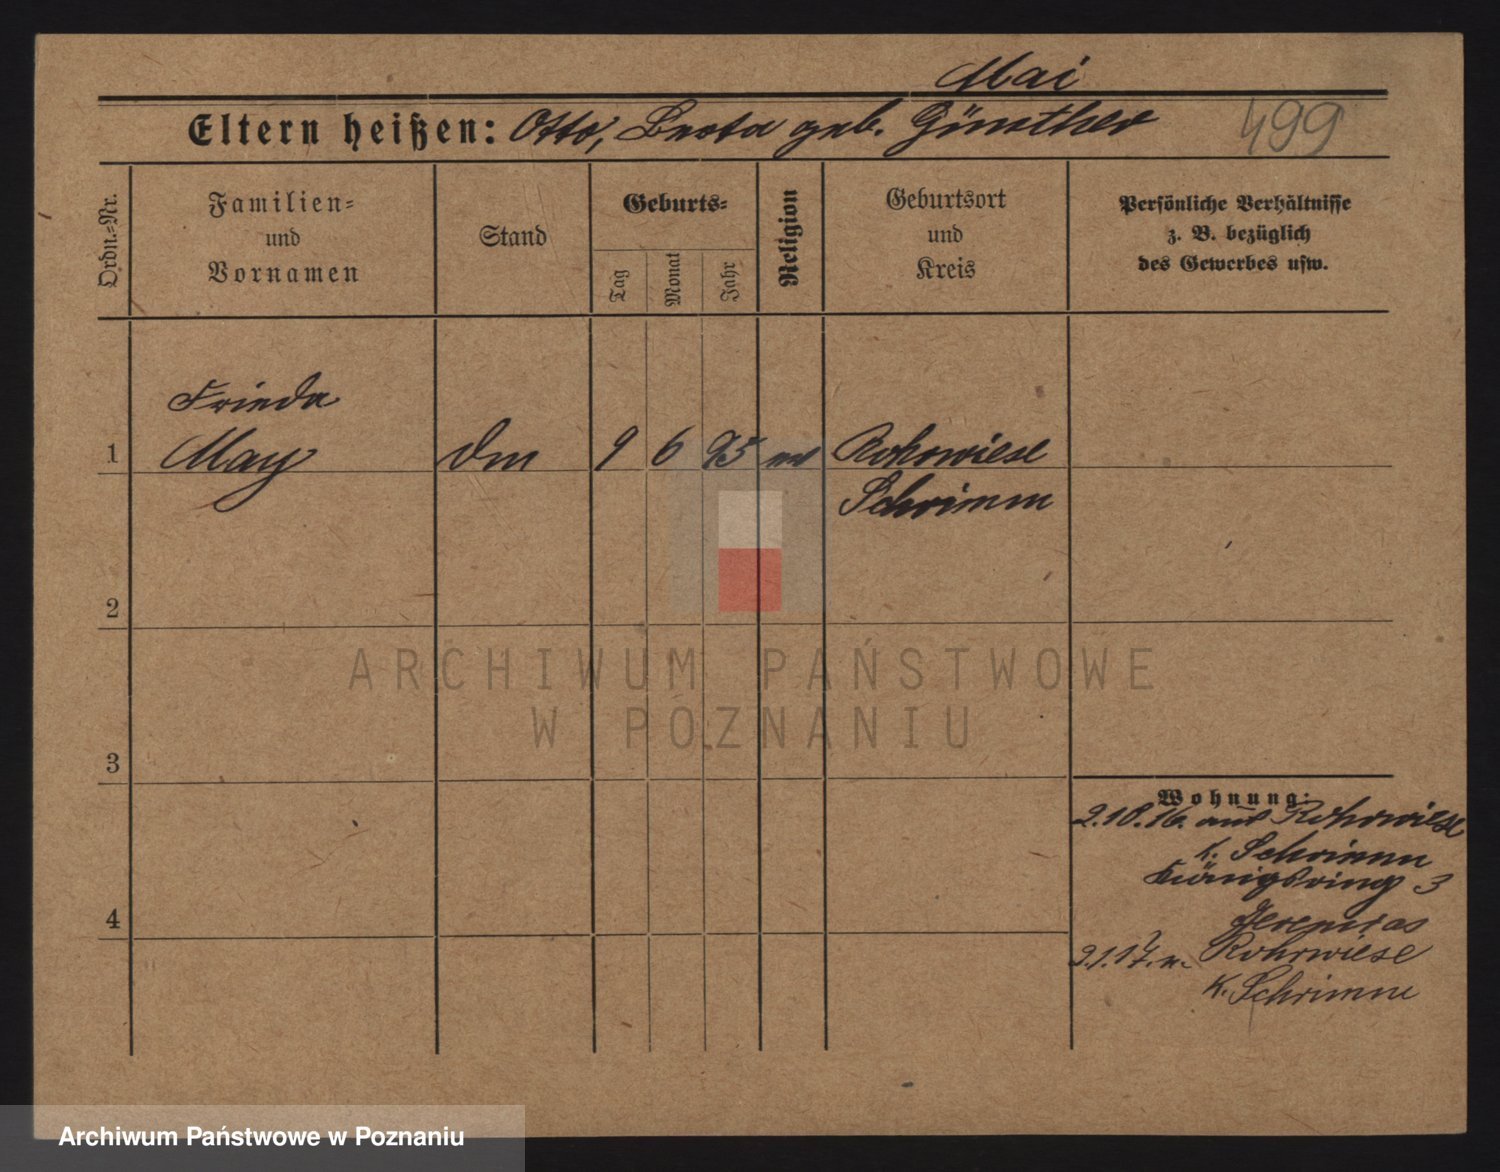 Mai
Eltern heißen: Otto, Berta geb. Günther
499
Ordn.-Nr.
Familien-
und
Vornamen
Stand
Geburts-
Tag
Monat
Jahr
Religion
Geburtsort
und
Kreis
Persönliche Verhältnisse
z. B. bezüglich
des Gewerbes usw.
Frieda
1 May 9 6 95 Rohrwiese
Schrimm
2
ARCHIWUM PAŃSTWOWE
W POZNANIU
3
Wohnung:
2.10.16. aus Rohrwiese
K. Schrimm
Königsring 3
2.1.17. n. Rohrwiese
K. Schrimm
4
Archiwum Państwowe w Poznaniu